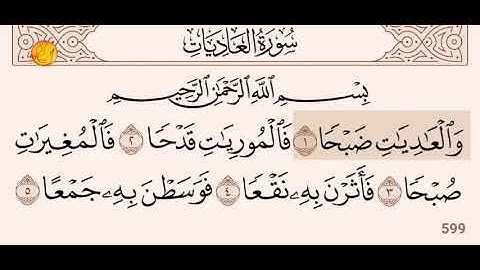 سُورَةُ العَادِيَاتِ
بِسْمِ اللَّهِ الرَّحْمَٰنِ الرَّحِيمِ
وَالْعَادِيَاتِ ضَبْحًا ١ فَالْمُورِيَاتِ قَدْحًا ٢ فَالْمُغِيرَاتِ
صُبْحًا ٣ فَأَثَرْنَ بِهِ نَقْعًا ٤ فَوَسَطْنَ بِهِ جَمْعًا ٥
599